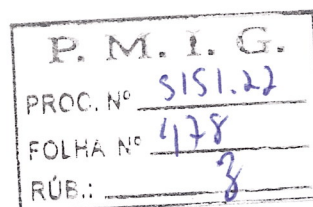 P. M. I. G.
PROC. Nº 5151.22
FOLHA Nº 478
RÚB.: